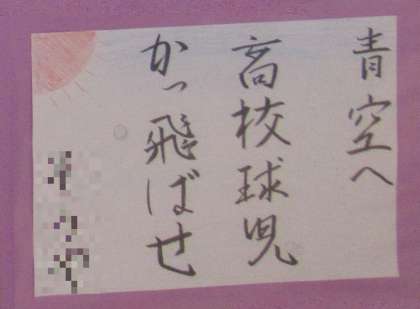 青空へ
高校球児
かっ飛ばせ